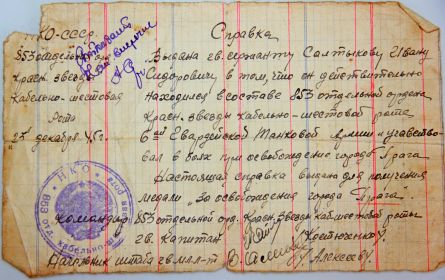 НКО-СССР.
853 отдельная орд.
Красн. звезды
Кабельно-шестовая
Рота
"25" декабря 45 г.
Справка
Выдана гв. сержанту Салтыкову Ивану
Сидоровичу в том, что он действительно
находился в составе 853 отдельной ордена
Красн. звезды кабельно-шестовой роте
6 ой Гвардейской Танковой Армии и участво-
вал в боях при освобождении города Прага
Настоящая справка выдана для получения
медали "За освобождения города Прага".
Командир 853 отдельной орд. Красн. Звезды каб. шестовой роты
гв. капитан
/Костюченко/
Начальник штаба гв. мл. л-т
/Алексеев/
НКО
853 отд. кабельно-ше
рота